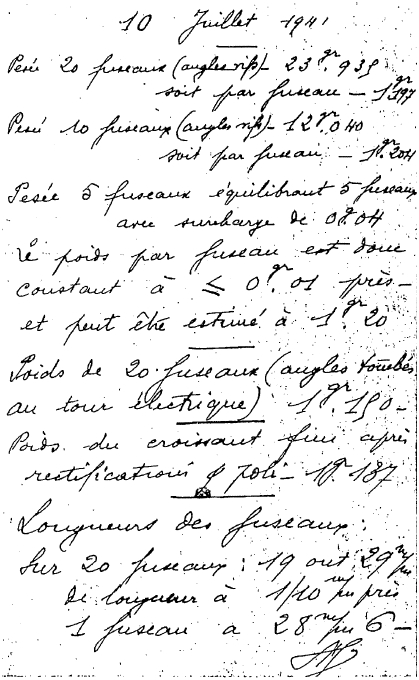 10 Juillet 1941
Pesée 20 fuseaux (angles vifs) - 23gr.935
soit par fuseau - 1gr.197
Pesé 10 fuseaux (angles vifs) - 12gr.040
soit par fuseau - 1gr.204
Pesée 5 fuseaux équilibrant 5 fuseaux
avec surcharge de 0g.04
Le poids par fuseau est donc
constant à ≤ 0gr.01 près -
et peut être estimé à 1gr.20
Poids de 20 fuseaux (angles tombés
au tour électrique) 1gr.190 -
Poids du croissant fini après
rectifications & poli - 1gr.187
Longueurs des fuseaux :
Sur 20 fuseaux : 19 ont 29 m/m
de longueur à 1/10 m/m près
1 fuseau a 28 m/m 6 -